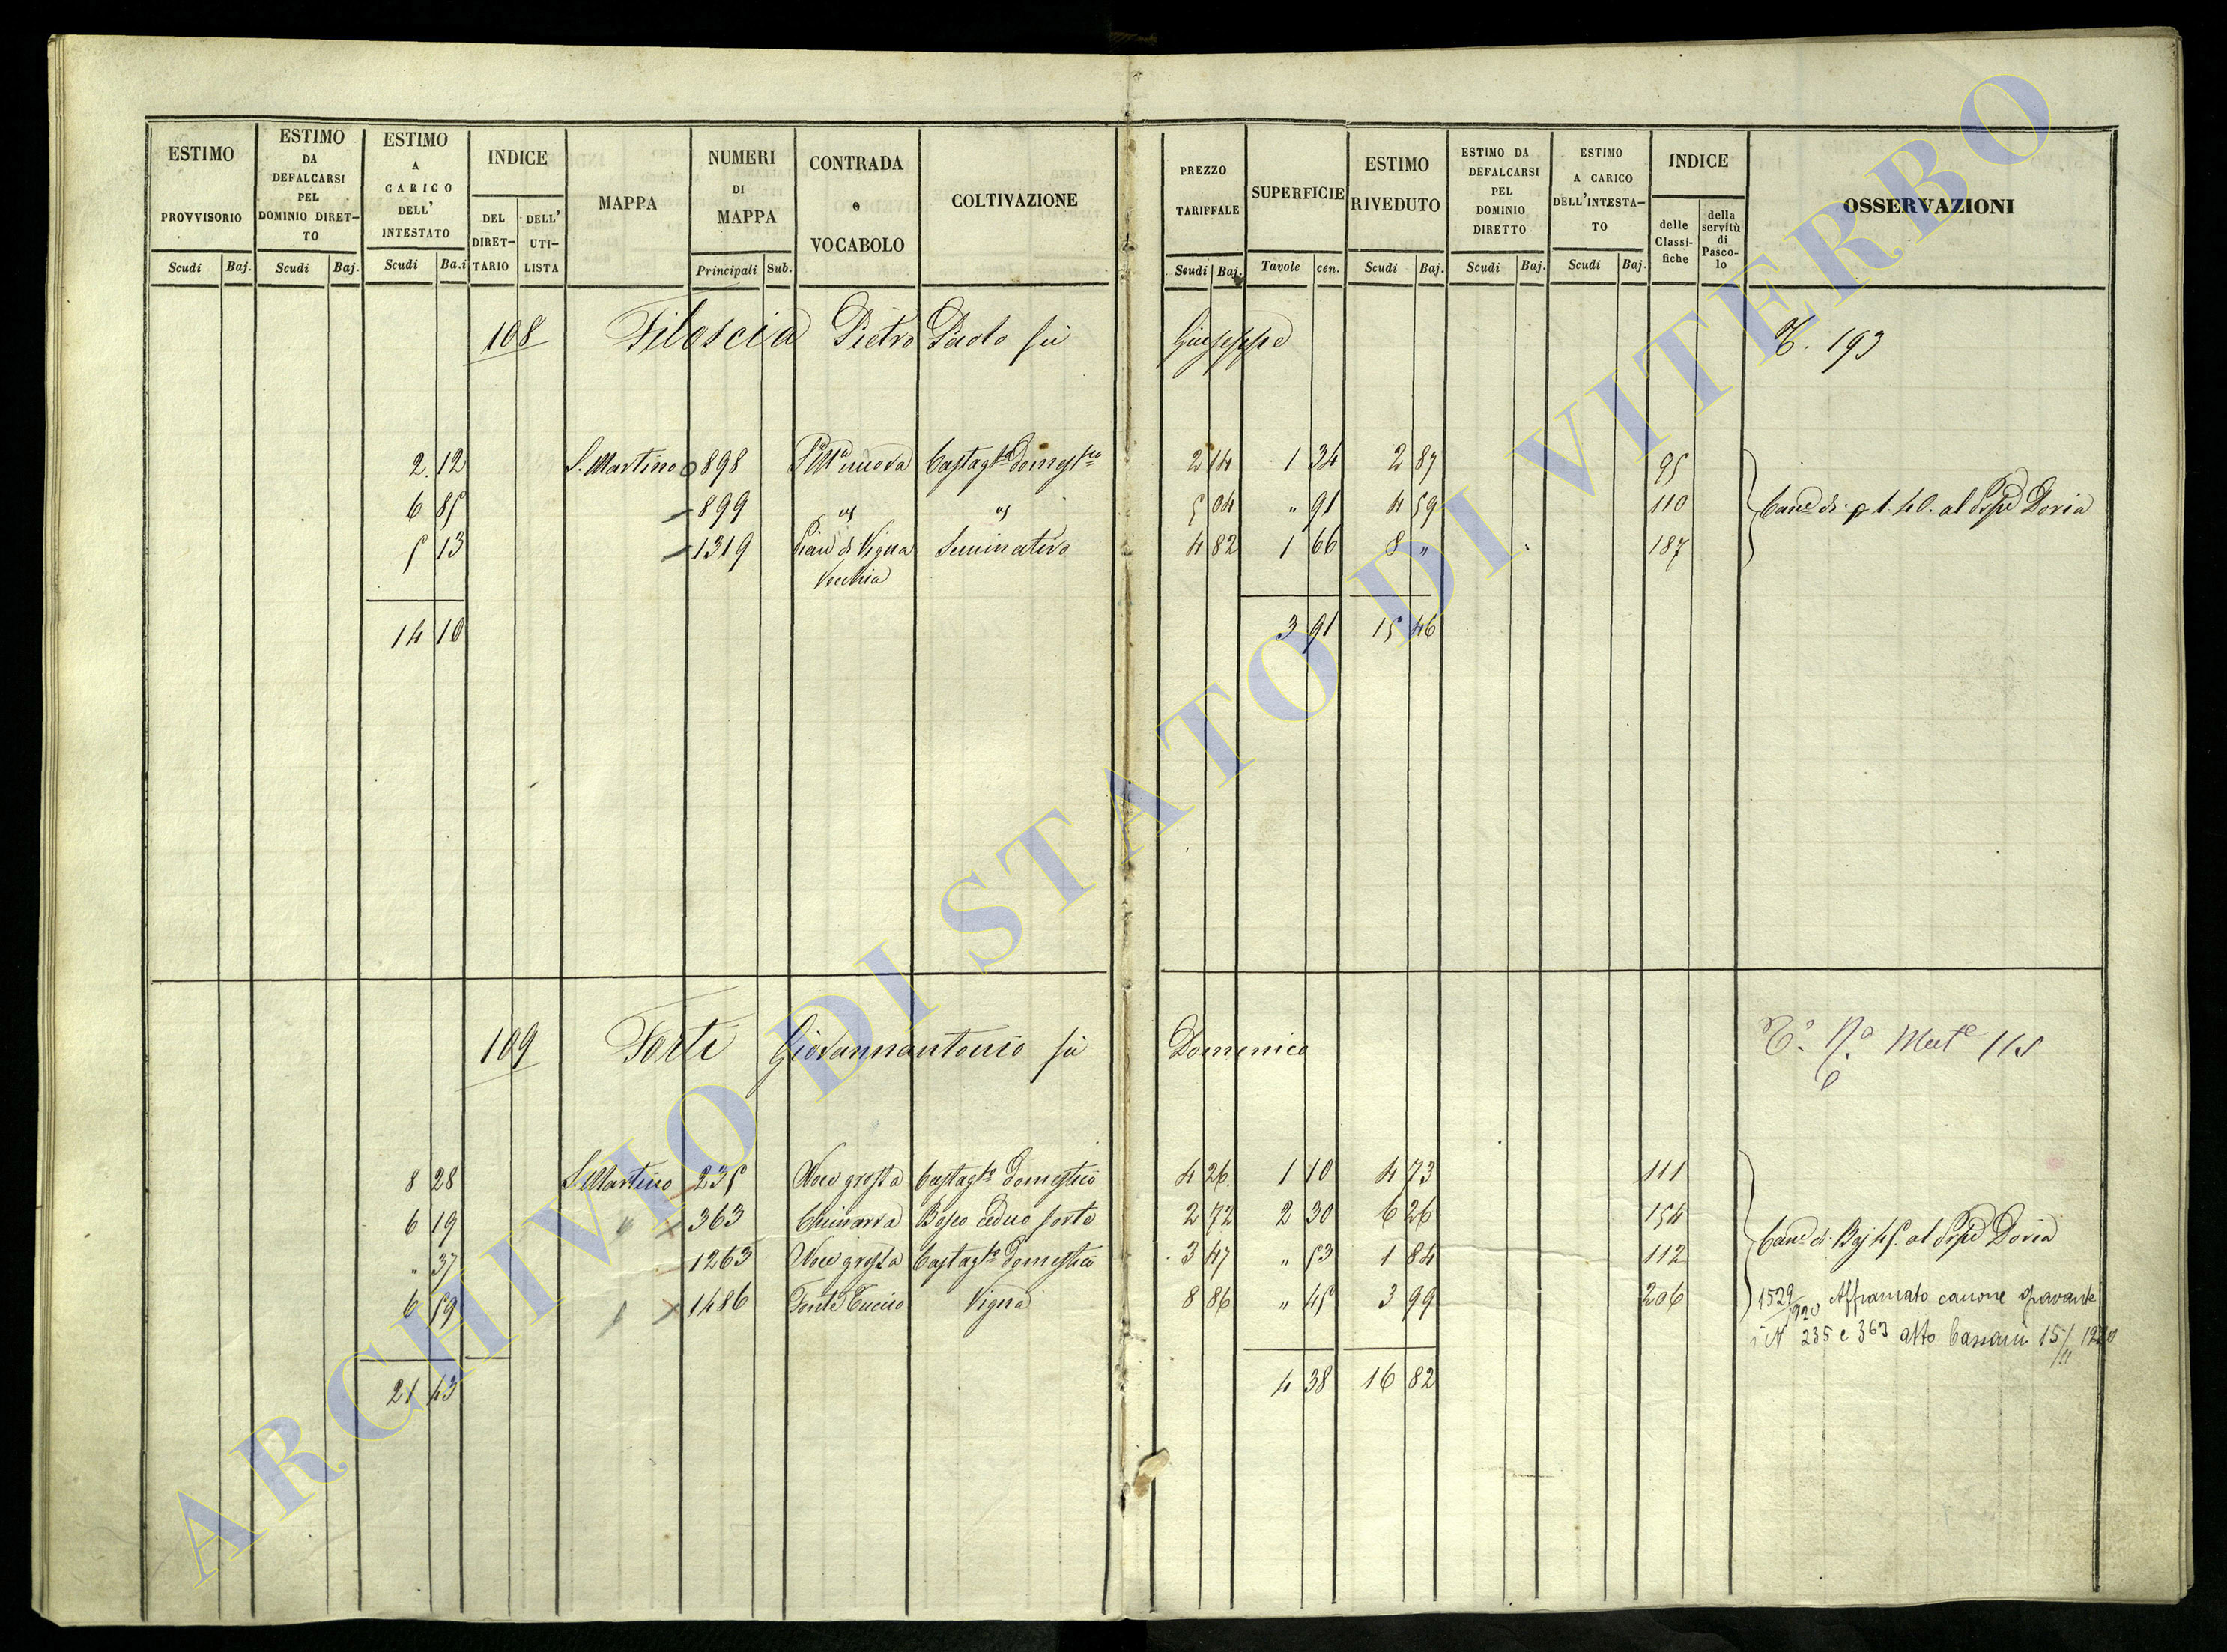 ESTIMO PROVVISORIO | ESTIMO DA DEFALCARSI PEL DOMINIO DIRET-TO | ESTIMO A CARICO DELL' INTESTATO | INDICE DEL DIRET-TARIO | DELL' UTI-LISTA | MAPPA | NUMERI DI MAPPA | CONTRADA o VOCABOLO | COLTIVAZIONE | PREZZO TARIFFALE | SUPERFICIE | ESTIMO RIVEDUTO | ESTIMO DA DEFALCARSI PEL DOMINIO DIRETTO | ESTIMO A CARICO DELL'INTESTA-TO | INDICE delle Classi-fiche | della servitù di Pasco-lo | OSSERVAZIONI
Scudi | Baj. | Scudi | Baj. | Scudi | Ba.i | Principali | Sub. | Scudi | Baj. | Tavole | cen. | Scudi | Baj. | Scudi | Baj. | Scudi | Baj.
108 Filoscia Pietro Paolo fu Giuseppe 193
2. 12 S. Martino 898 nuova Castagto Domestco 2 14 1 34 2 87 95
6 85 899 " " 5 04 " 91 4 59 110 Cane di 1.40. al Doria
5 13 1319 Pian di Vigna Seminativo 4 82 1 66 8 " 187
Vecchia
14 10 3 91 15 46
109 Forti Giovannantonio fu Domenico 115
8 28 S. Martino 235 Noce grossa Castagto Domestico 4 26. 1 10 4 73 111
6 19 " 363 Bosco ceduo forte 2 72 2 30 6 26 154
" 37 1263 Noce grossa Castagto Domestico 3 47 " 53 1 84 112 Cane di Baj 45. al Doria
6 59 1486 Vigna 8 86 " 45 3 99 206 1529/920 Affrancato canone gravante
235 e 363 atto 15/11 1920
21 43 4 38 16 82
ARCHIVIO DI STATO DI VITERBO